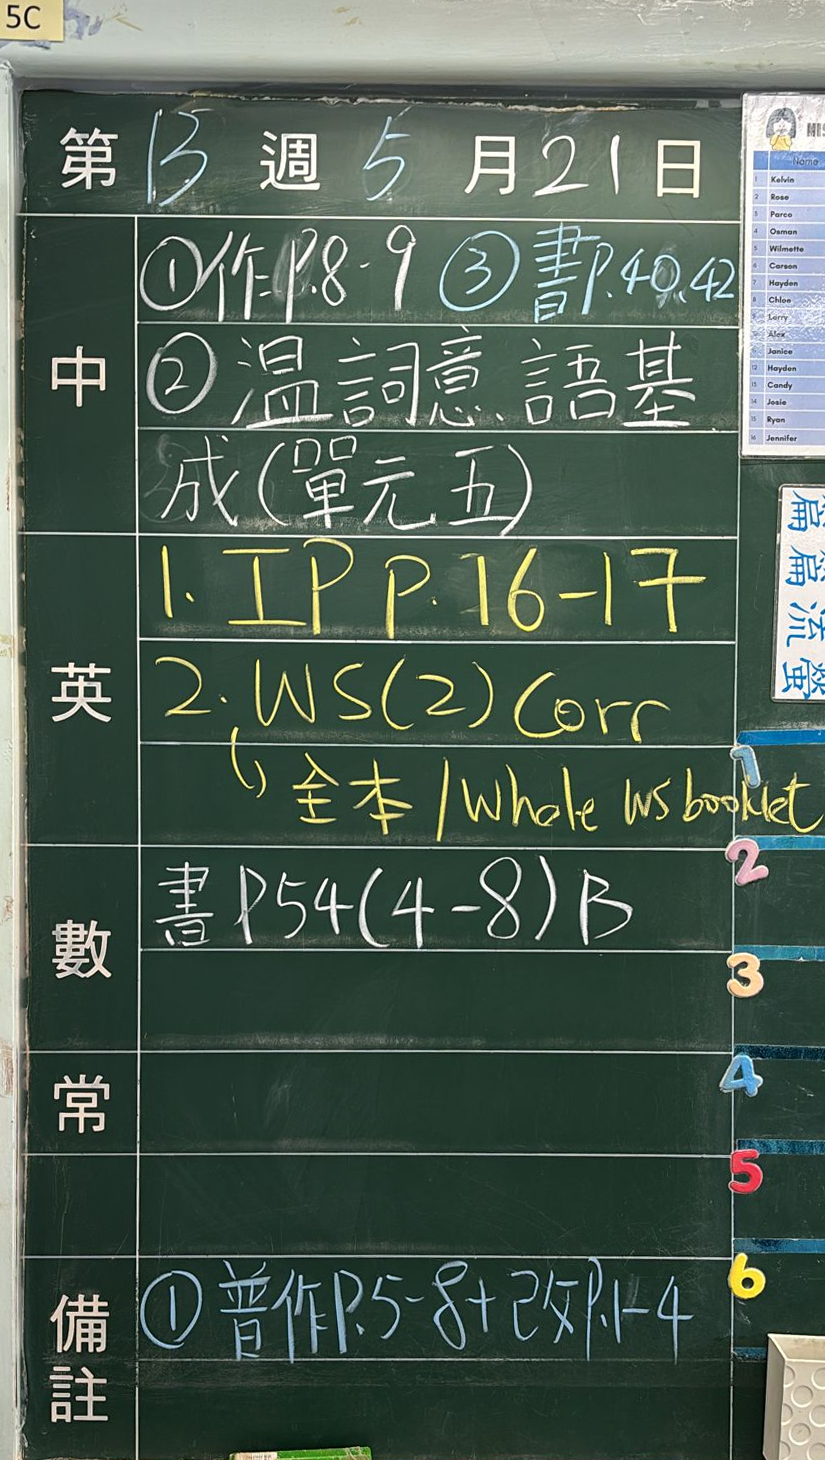 5C
第 13 週 5 月 21 日
中
①作P.8-9 ③書P.40,42
②温詞意、語基
成(單元五)
英
1. IP p.16-17
2. WS(2) Corr
↳ 全本/Whole WS booklet
數
書P54(4-8)B
常
備註
①普作P.5-8+改P.1-4
Name
1 Kelvin
2 Rose
3 Parco
4 Osman
5 Wilmette
6 Carson
7 Hayden
8 Chloe
Larry
Alex
Janice
12 Hayden
13 Candy
14 Josie
15 Ryan
16 Jennifer
篇
篇
流
螢
1
2
3
4
5
6